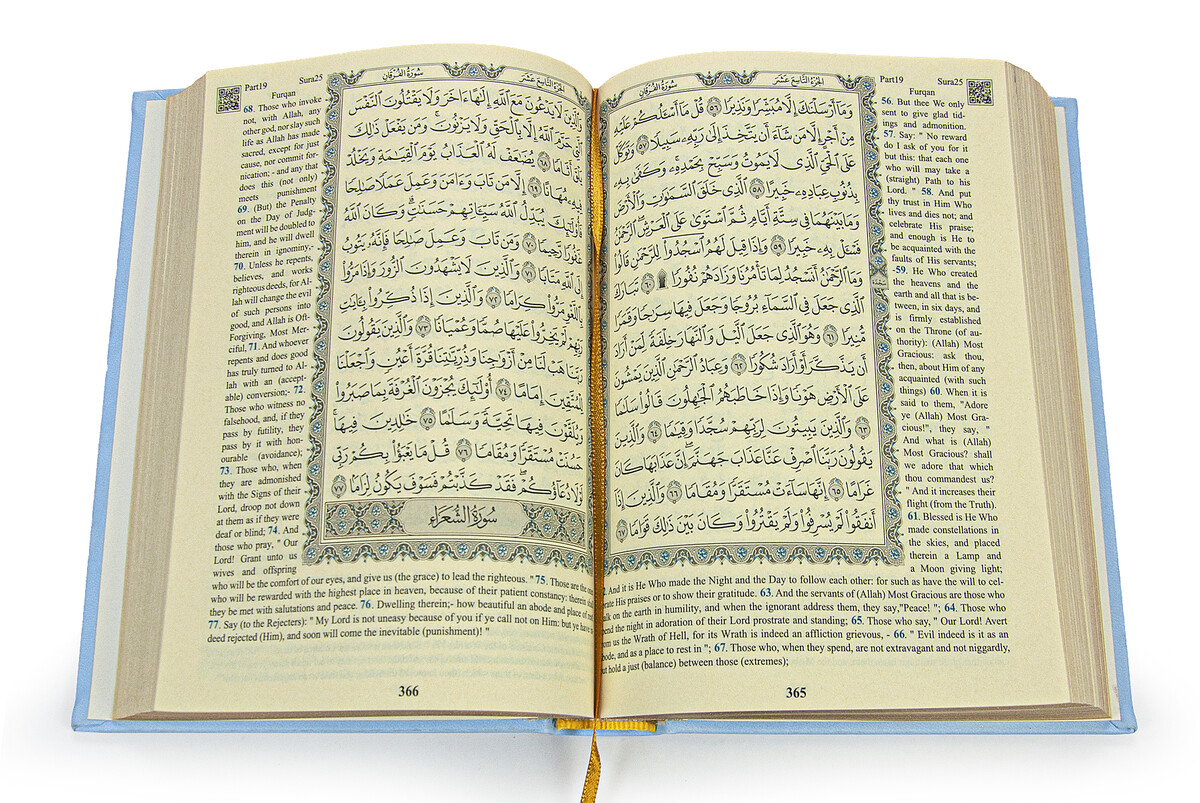 الجزء التاسع عشر سورة الفرقان
وَمَا أَرْسَلْنَاكَ إِلَّا مُبَشِّرًا وَنَذِيرًا ٥٦ قُلْ مَا أَسْئَلُكُمْ عَلَيْهِ
مِنْ أَجْرٍ إِلَّا مَنْ شَاءَ أَنْ يَتَّخِذَ إِلَىٰ رَبِّهِ سَبِيلًا ٥٧ وَتَوَكَّلْ
عَلَى الْحَيِّ الَّذِي لَا يَمُوتُ وَسَبِّحْ بِحَمْدِهِ وَكَفَىٰ بِهِ
بِذُنُوبِ عِبَادِهِ خَبِيرًا ٥٨ الَّذِي خَلَقَ السَّمَٰوَٰتِ وَالْأَرْضَ
وَمَا بَيْنَهُمَا فِي سِتَّةِ أَيَّامٍ ثُمَّ اسْتَوَىٰ عَلَى الْعَرْشِ الرَّحْمَٰنُ
فَسْئَلْ بِهِ خَبِيرًا ٥٩ وَإِذَا قِيلَ لَهُمُ اسْجُدُوا لِلرَّحْمَٰنِ قَالُوا
وَمَا الرَّحْمَٰنُ أَنَسْجُدُ لِمَا تَأْمُرُنَا وَزَادَهُمْ نُفُورًا ٦٠ تَبَارَكَ
الَّذِي جَعَلَ فِي السَّمَاءِ بُرُوجًا وَجَعَلَ فِيهَا سِرَاجًا وَقَمَرًا
مُنِيرًا ٦١ وَهُوَ الَّذِي جَعَلَ اللَّيْلَ وَالنَّهَارَ خِلْفَةً لِمَنْ أَرَادَ
أَنْ يَذَّكَّرَ أَوْ أَرَادَ شُكُورًا ٦٢ وَعِبَادُ الرَّحْمَٰنِ الَّذِينَ يَمْشُونَ
عَلَى الْأَرْضِ هَوْنًا وَإِذَا خَاطَبَهُمُ الْجَاهِلُونَ قَالُوا سَلَامًا
٦٣ وَالَّذِينَ يَبِيتُونَ لِرَبِّهِمْ سُجَّدًا وَقِيَامًا ٦٤ وَالَّذِينَ
يَقُولُونَ رَبَّنَا اصْرِفْ عَنَّا عَذَابَ جَهَنَّمَ إِنَّ عَذَابَهَا كَانَ
غَرَامًا ٦٥ إِنَّهَا سَاءَتْ مُسْتَقَرًّا وَمُقَامًا ٦٦ وَالَّذِينَ إِذَا
أَنْفَقُوا لَمْ يُسْرِفُوا وَلَمْ يَقْتُرُوا وَكَانَ بَيْنَ ذَٰلِكَ قَوَامًا ٦٧
Part19 Sura25
Furqan
56. But thee We only
sent to give glad tid-
ings and admonition.
57. Say: " No reward
do I ask of you for it
but this: that each one
who will may take a
(straight) Path to his
Lord. " 58. And put
thy trust in Him Who
lives and dies not; and
celebrate His praise;
and enough is He to
be acquainted with the
faults of His servants;
-59. He Who created
the heavens and the
earth and all that is be-
tween, in six days, and
is firmly established
on the Throne (of au-
thority): (Allah) Most
Gracious: ask thou,
then, about Him of any
acquainted (with such
things) 60. When it is
said to them, "Adore
ye (Allah) Most Gra-
cious!", they say, "
And what is (Allah)
Most Gracious? shall
we adore that which
thou commandest us?
" And it increases their
flight (from the Truth).
61. Blessed is He Who
made constellations in
the skies, and placed
therein a Lamp and
a Moon giving light;
And it is He Who made the Night and the Day to follow each other: for such as have the will to cel-
His praises or to show their gratitude. 63. And the servants of (Allah) Most Gracious are those who
on the earth in humility, and when the ignorant address them, they say,"Peace! "; 64. Those who
the night in adoration of their Lord prostrate and standing; 65. Those who say, " Our Lord! Avert
us the Wrath of Hell, for its Wrath is indeed an affliction grievous, - 66. " Evil indeed is it as an
and as a place to rest in "; 67. Those who, when they spend, are not extravagant and not niggardly,
hold a just (balance) between those (extremes);
365
الجزء التاسع عشر سورة الفرقان
وَالَّذِينَ لَا يَدْعُونَ مَعَ اللَّهِ إِلَٰهًا آخَرَ وَلَا يَقْتُلُونَ النَّفْسَ
الَّتِي حَرَّمَ اللَّهُ إِلَّا بِالْحَقِّ وَلَا يَزْنُونَ وَمَنْ يَفْعَلْ ذَٰلِكَ
يَلْقَ أَثَامًا ٦٨ يُضَاعَفْ لَهُ الْعَذَابُ يَوْمَ الْقِيَامَةِ وَيَخْلُدْ
فِيهِ مُهَانًا ٦٩ إِلَّا مَنْ تَابَ وَآمَنَ وَعَمِلَ عَمَلًا صَالِحًا
فَأُولَٰئِكَ يُبَدِّلُ اللَّهُ سَيِّئَاتِهِمْ حَسَنَاتٍ وَكَانَ اللَّهُ
غَفُورًا رَحِيمًا ٧٠ وَمَنْ تَابَ وَعَمِلَ صَالِحًا فَإِنَّهُ يَتُوبُ
إِلَى اللَّهِ مَتَابًا ٧١ وَالَّذِينَ لَا يَشْهَدُونَ الزُّورَ وَإِذَا مَرُّوا
بِاللَّغْوِ مَرُّوا كِرَامًا ٧٢ وَالَّذِينَ إِذَا ذُكِّرُوا بِآيَاتِ
رَبِّهِمْ لَمْ يَخِرُّوا عَلَيْهَا صُمًّا وَعُمْيَانًا ٧٣ وَالَّذِينَ يَقُولُونَ
رَبَّنَا هَبْ لَنَا مِنْ أَزْوَاجِنَا وَذُرِّيَّاتِنَا قُرَّةَ أَعْيُنٍ وَاجْعَلْنَا
لِلْمُتَّقِينَ إِمَامًا ٧٤ أُولَٰئِكَ يُجْزَوْنَ الْغُرْفَةَ بِمَا صَبَرُوا
وَيُلَقَّوْنَ فِيهَا تَحِيَّةً وَسَلَامًا ٧٥ خَالِدِينَ فِيهَا
حَسُنَتْ مُسْتَقَرًّا وَمُقَامًا ٧٦ قُلْ مَا يَعْبَؤُا بِكُمْ رَبِّي
لَوْلَا دُعَاؤُكُمْ فَقَدْ كَذَّبْتُمْ فَسَوْفَ يَكُونُ لِزَامًا ٧٧
سورة الشعراء
Part19 Sura25
Furqan
68. Those who invoke
not, with Allah, any
other god, nor slay such
life as Allah has made
sacred, except for just
cause, nor commit for-
nication; - and any that
does this (not only)
meets punishment
69. (But) the Penalty
on the Day of Judg-
ment will be doubled to
him, and he will dwell
therein in ignominy,-
70. Unless he repents,
believes, and works
righteous deeds, for Al-
lah will change the evil
of such persons into
good, and Allah is Oft-
Forgiving, Most Mer-
ciful, 71. And whoever
repents and does good
has truly turned to Al-
lah with an (accept-
able) conversion;- 72.
Those who witness no
falsehood, and, if they
pass by futility, they
pass by it with hon-
ourable (avoidance);
73. Those who, when
they are admonished
with the Signs of their
Lord, droop not down
at them as if they were
deaf or blind; 74. And
those who pray, " Our
Lord! Grant unto us
wives and offspring
who will be the comfort of our eyes, and give us (the grace) to lead the righteous. " 75. Those are the
who will be rewarded with the highest place in heaven, because of their patient constancy: therein
they be met with salutations and peace. 76. Dwelling therein;- how beautiful an abode and place of
77. Say (to the Rejecters): " My Lord is not uneasy because of you if ye call not on Him: but ye have
deed rejected (Him), and soon will come the inevitable (punishment)! "
366